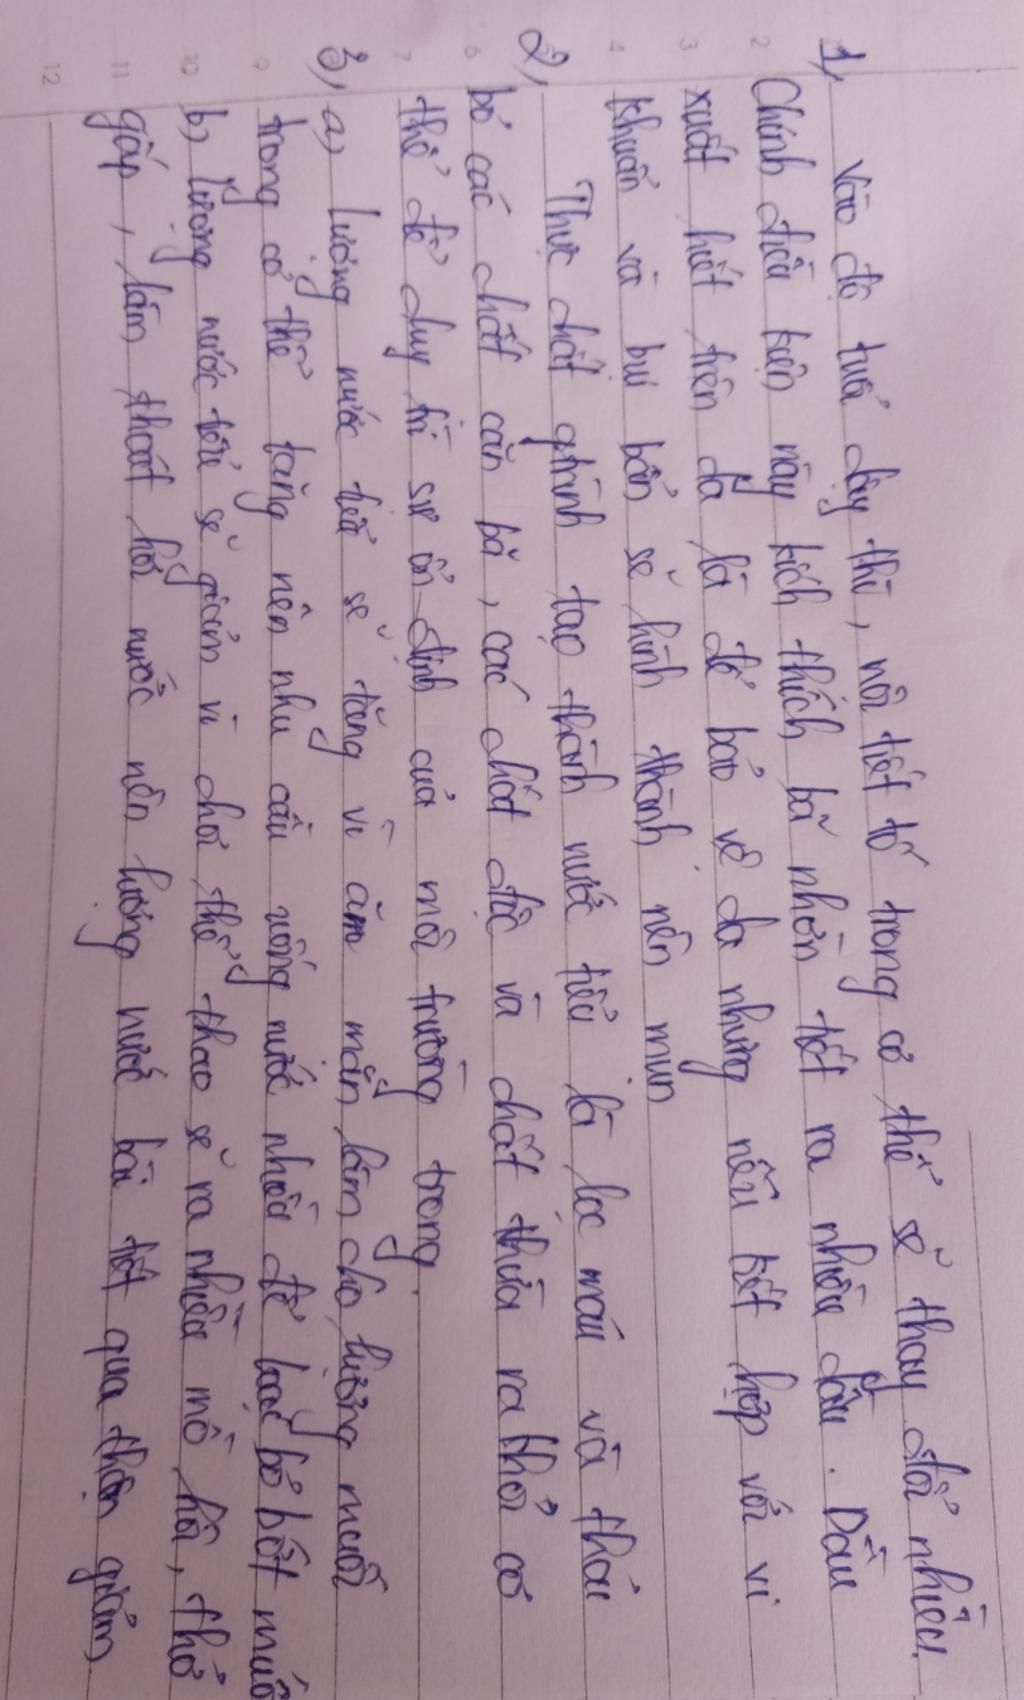 1, Vào độ tuổi dậy thì, nội tiết tố trong cơ thể sẽ thay đổi nhiều.
Chính điều kiện này kích thích bã nhờn tiết ra nhiều dầu. Dầu
xuất hiết trên da là để bảo vệ da nhưng nếu kết hợp với vi
khuẩn và bụi bẩn sẽ hình thành nên mụn
2, Thực chất qtrình tạo thành nước tiểu là lọc máu và thải
bỏ các chất cặn bã, các chất độc và chất thừa ra khỏi cơ
thể để duy trì sự ổn định của môi trường trong.
3, a, lượng nước tiểu sẽ tăng vì ăn mặn làm cho lượng muối
trong cơ thể tăng nên nhu cầu uống nước nhiều để loại bỏ bớt muối
b, lượng nước tiểu sẽ giảm vì chơi thể thao sẽ ra nhiều mồ hôi, thở
gấp, làm thoát hơi nước nên lượng nước bài tiết qua thận giảm.
2
3
4
6
7
9
10
11
12